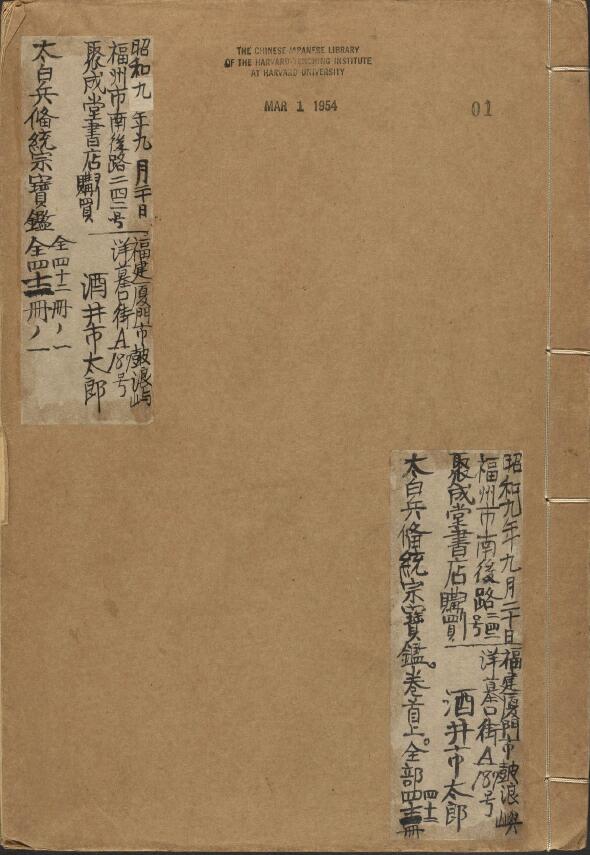 THE CHINESE-JAPANESE LIBRARY
OF THE HARVARD-YENCHING INSTITUTE
AT HARVARD UNIVERSITY
MAR 1 1954
01
昭和九年九月二十日
福州市南後路二四二号
聚成堂書店ヨリ購買
福建厦門市鼓浪嶼
洋墓口街A189号
酒井市太郎
太白兵備統宗寶鑑
全四十二冊ノ一
全四十二冊ノ一
昭和九年九月二十日
福州市南後路二四二号
聚成堂書店ヨリ購買
福建厦門市鼓浪嶼
洋墓口街A189号
酒井市太郎
太白兵備統宗寶鑑。卷首上。全部四十二冊